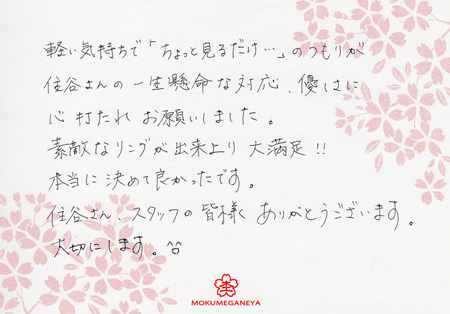 軽い気持ちで「ちょっと見るだけ…」のつもりが
住谷さんの一生懸命な対応、優しさに
心打たれお願いしました。
素敵なリングが出来上り大満足!!
本当に決めて良かったです。
住谷さん、スタッフの皆様ありがとうございます。
大切にします。^^
杢
MOKUMEGANEYA